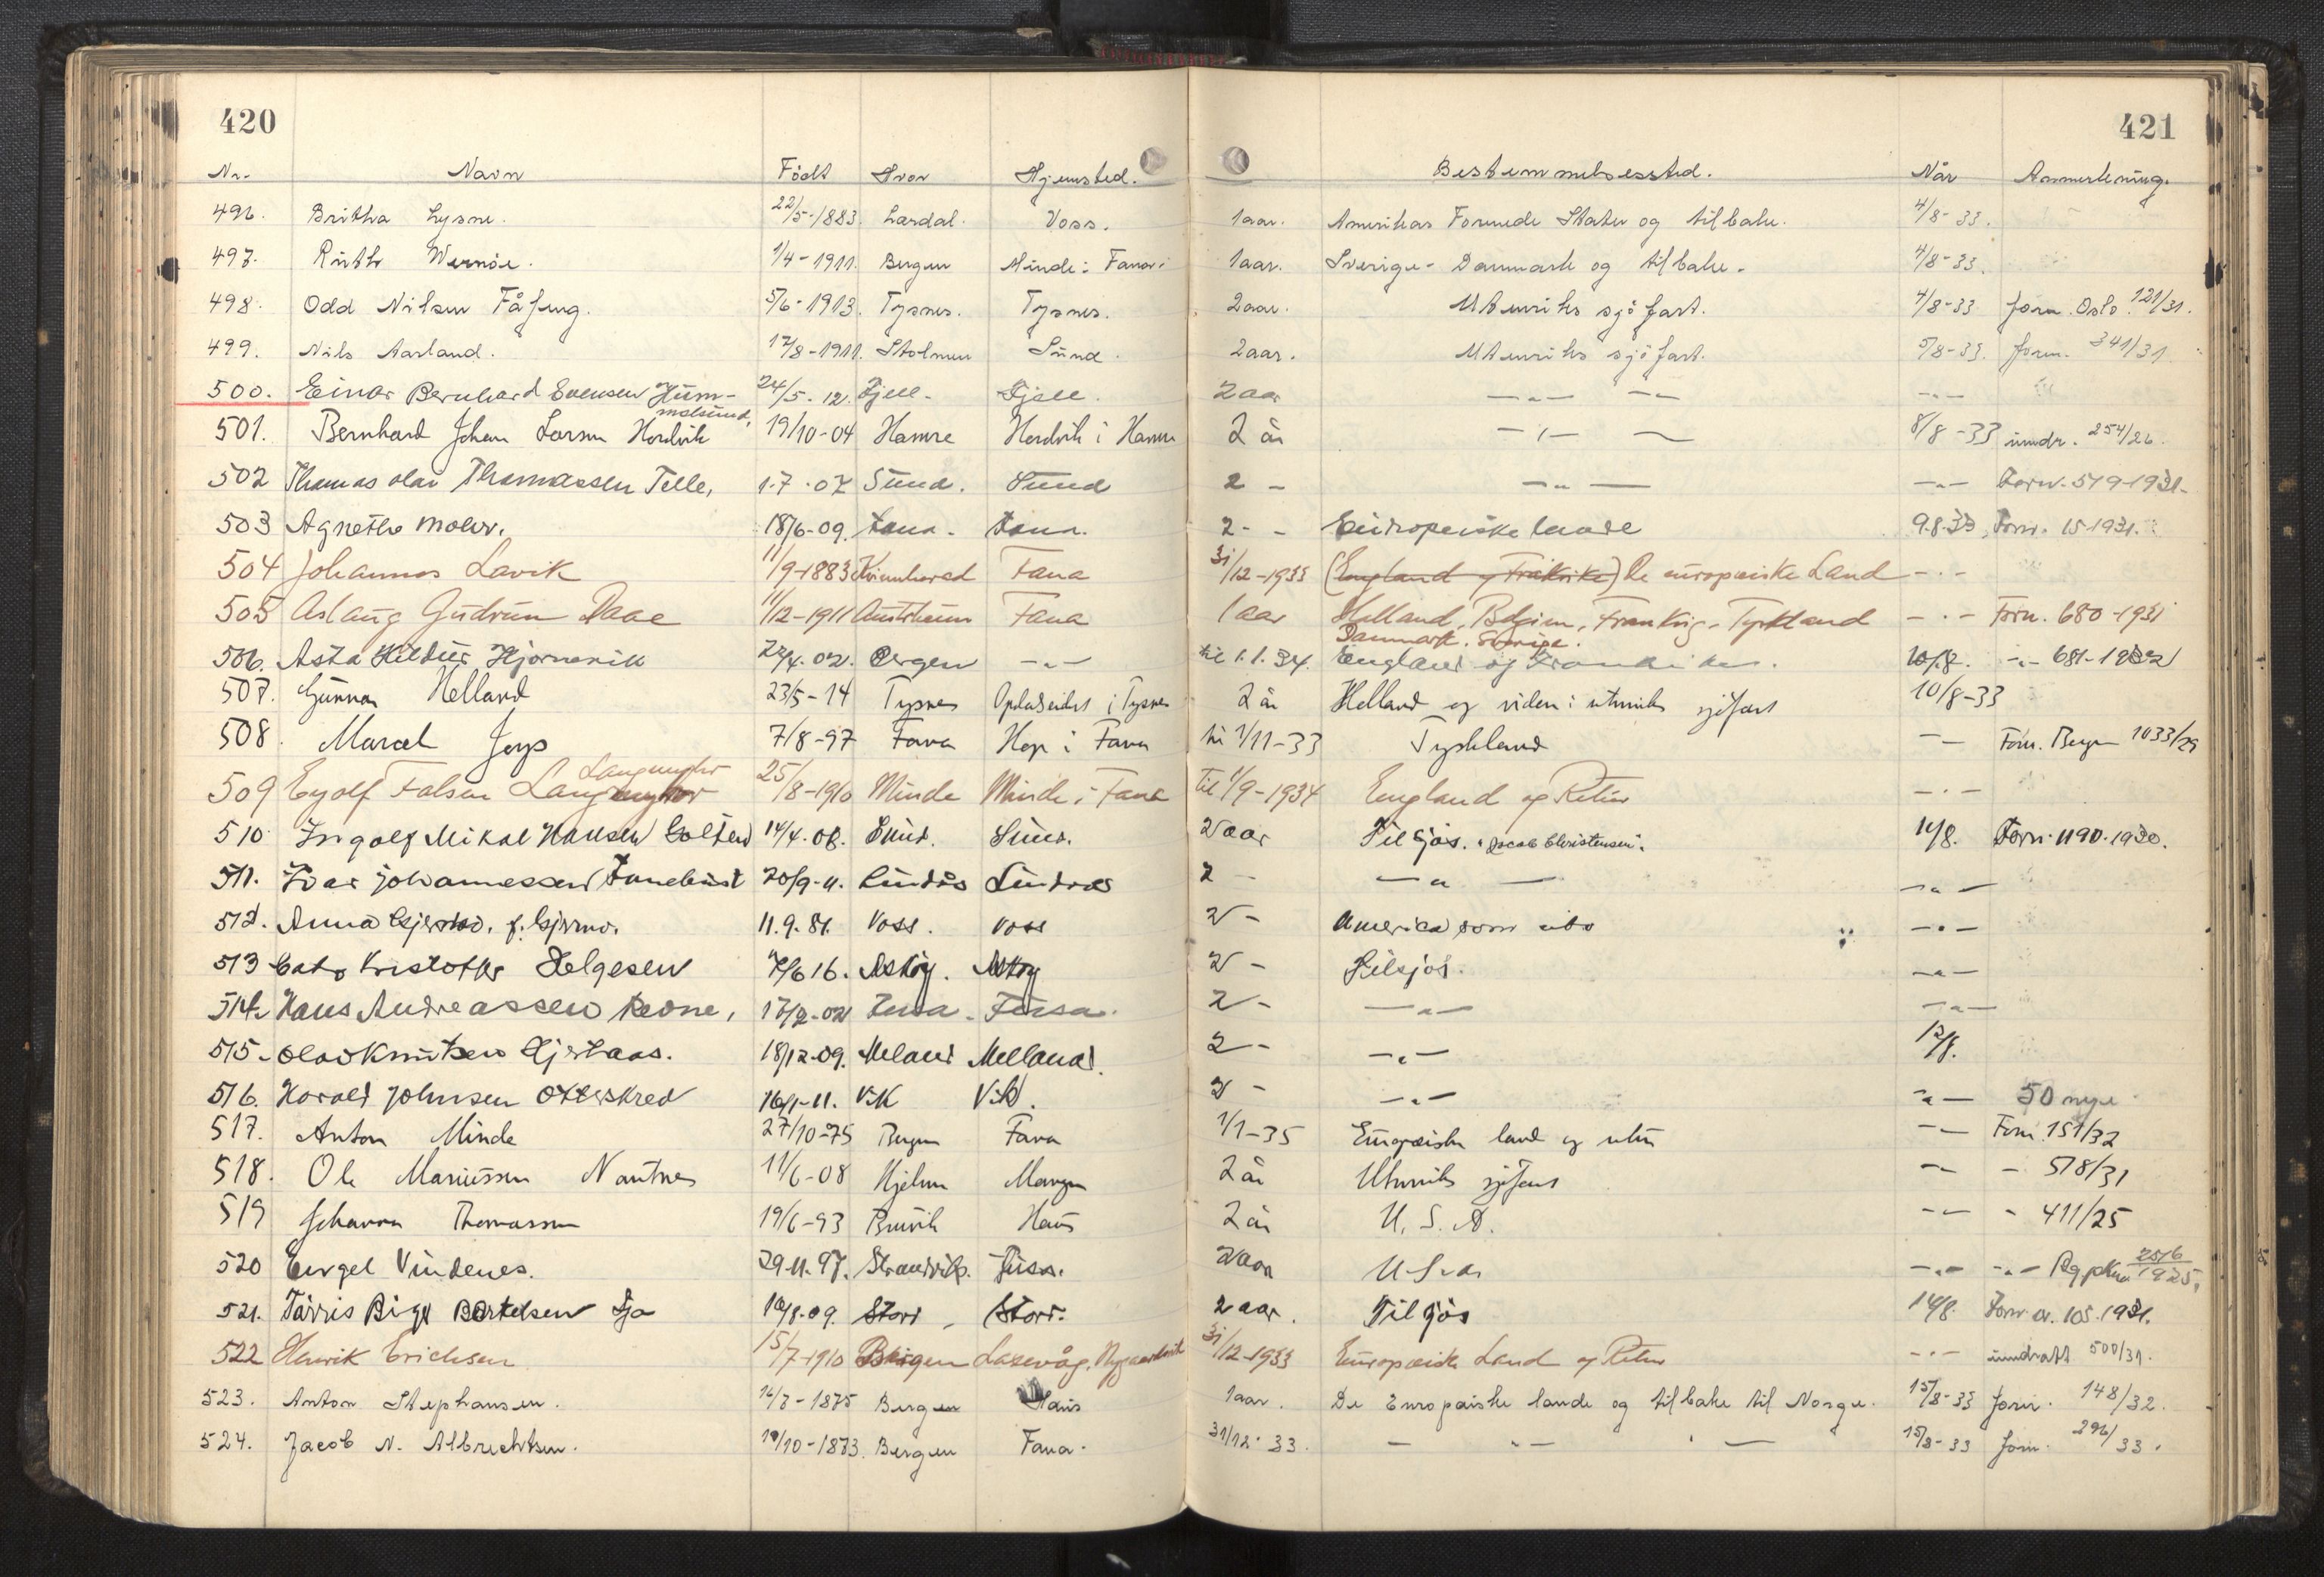 420
421
Nr. Navn Född Hvor Hjemsted. Bestemmelsessted. Når Anmerkning.
496. Britha Lysne. 22/5-1883. Lærdal. Voss. 1 aar. Amerikas Forenede Stater og tilbake. 4/8-33.
497. Ruth Wernöe. 1/4-1911. Bergen Minde i Fana. 1 aar. Sverige - Danmark og tilbake. 4/8-33.
498. Odd Nilsen Fåseng. 5/6-1913. Tysnes. Tysnes. 2 aar. Utenriks sjöfart. 4/8-33 forn. Oslo. 121/31.
499. Nils Aarland. 12/8-1911. Stolmen Sund. 2 aar. Utenriks sjöfart. 5/8-33. forn. 341/31
500. Einar Bernhard Evensen Hum- 24/5-12. Fjell. Fjell. 2 aar -"- -- -"-
melsund,
501. Bernhard Johan Larsen Hordvik 19/10-04 Hamre Hordvik i Hamre 2 år -"- — 8/8-33 inndr. 254/26.
502 Thomas Olai Thomassen Telle, 1.7.07 Sund. Sund 2 - -"- — -"- Forn. 519-1931.
503 Agnethe Mohr. 18/6-09. Fana. Fana. 2 - - Europeiske lande 9.8.33, Forn. 15-1931.
504 Johannes Lavik 11/9-1883 Kvinnherad Fana 31/12-1933 (England og Frankrike) De europæiske Land -"-
505 Aslaug Gudrun Daae 11/12-1911 Austrheim Fana 1 aar Holland, Belgien, Frankrig, Tyskland -"- Forn. 680-1931
Danmark. Sverige.
506. Asta Hildur Hjörnevik 22/4.02. Bergen -"- til 1.1.34. England og Frankrike. 10/8. -"- 681-1932
507. Gunnar Helland 23/5-14 Tysnes Opdalseidet i Tysnes 2 år Holland og videre i utenriks sjöfart 10/8-33
508. Marcel Joys 7/8-97 Fana Hop i Fana til 1/11-33 Tyskland -"- Forn. Bergen 1033/29
Langmyhr
509 Eyolf Falsen Langmyhr 25/8-1910 Minde Minde i Fana Til 1/9-1934 England og Retur -"-
510 Ingolf Mikal Hansen Golten 14/4.08. Sund. Sund. 2 aar Til sjös. "Jacob Christensen". 11/8. Forn. 1190-1930.
511. Ivar Johannessen Fanebust 20/9-11. Lindås Lindaas 2 - -"- — -"-
512. Anna Gjermo, f. Gjermo. 11.9.81. Voss. Voss 2 - America som ubo -"-
513 Cato Kristoffer Helgesen 7/6 16. Askøy. Askøy 2 - Til sjös. -"-
514. Hans Andreassen Revne, 17/2-02 Fusa. Fusa. 2 - -"- -"-
515. Olav Knutsen Gjertaas. 18/12-09. Meland Melland. 2 - -"- 12/8.
516. Harald Johnsen Otterskred 16/1-11. Vik Vik. 2 - -"- -"- 50 nye
517. Anton Minde 27/10-75 Bergen Fana 1/1-35 Europæiske land og retur -"- Forn. 151/32
518. Ole Mariussen Nautnes 11/6-08 Hjelme Manger 2 år Utenriks sjöfart -"- - 578/31
519 Johanna Thomassen 19/6-93 Bruvik Haus 2 år U. S. A. -"- - 411/25
520 Engel Vindenes. 29.11.97. Strandvik. Fusa. 2 aar U.S.A. -"- -"- 2516/1925.
521. Stord, Stord. 2 aar. Til sjös 14/8. Forn. 105.1931.
522 Henrik Erichsen 15/7-1910 Bergen Laxevåg, 31/12-1933 Europæiske Land og Retur -"- inndratt 500/31.
523. Anton Stephansen. 16/7-1875 Bergen Haus 1 aar. De Europæiske lande og tilbake til Norge. 15/8-33 forn. 148/32.
524. Jacob N. Albrechtsen. 19/10-1873. Bergen Fana. 31/12-33. — "- " — 15/8-33 forn. 296/33.